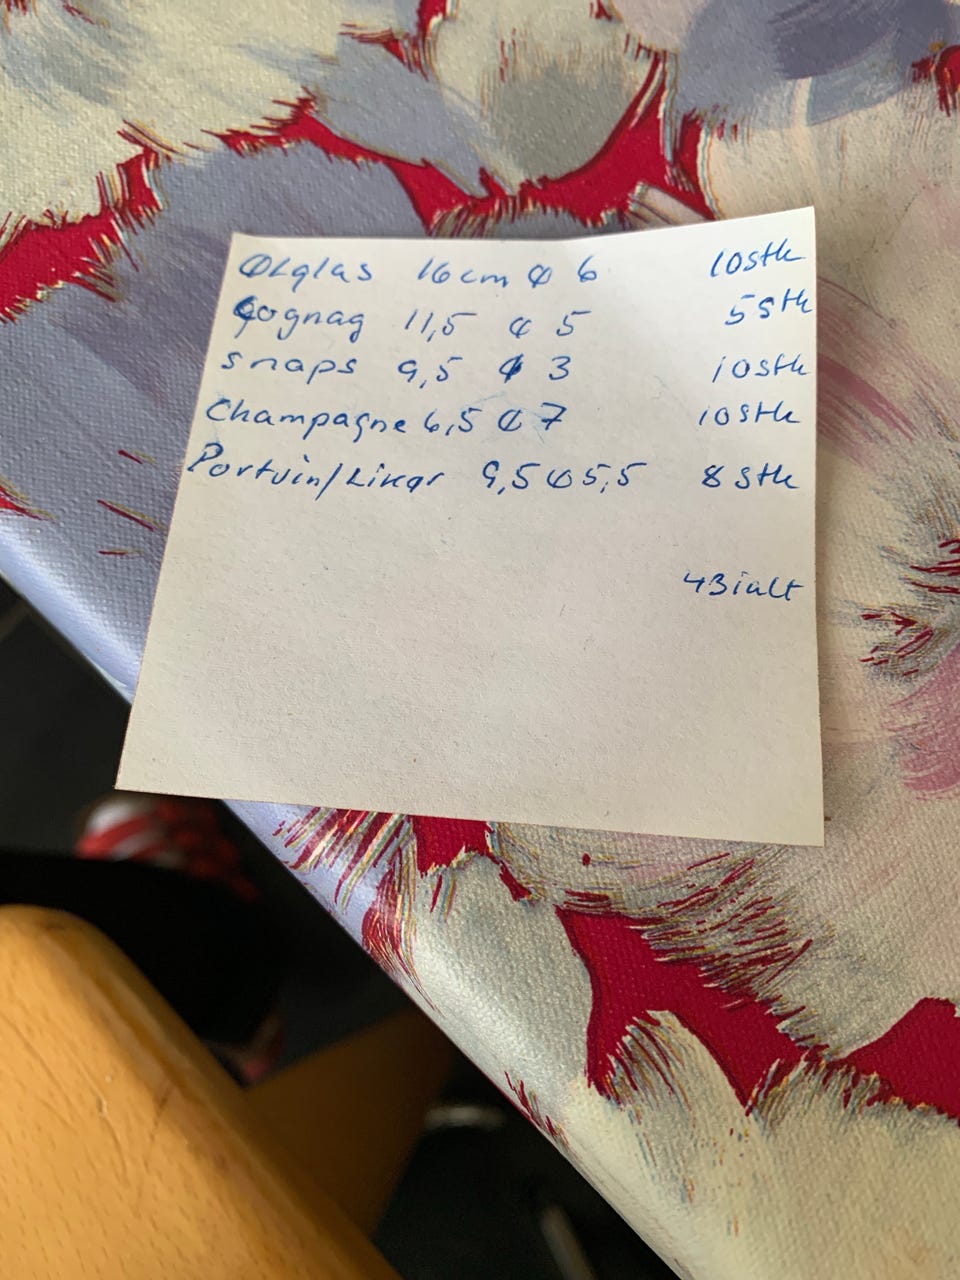 Ølglas 16cm Ø 6 10stk
Gognag 11,5 Ø 5 5stk
snaps 9,5 Ø 3 10stk
Champagne 6,5 Ø 7 10stk
Portvin/Likør 9,5 Ø 5,5 8 stk
43 ialt